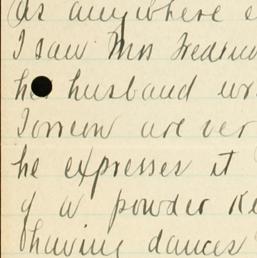 as anywhere e
I saw Mrs
he husband wr
are ver
he expresses it
of a powder ke
having dances